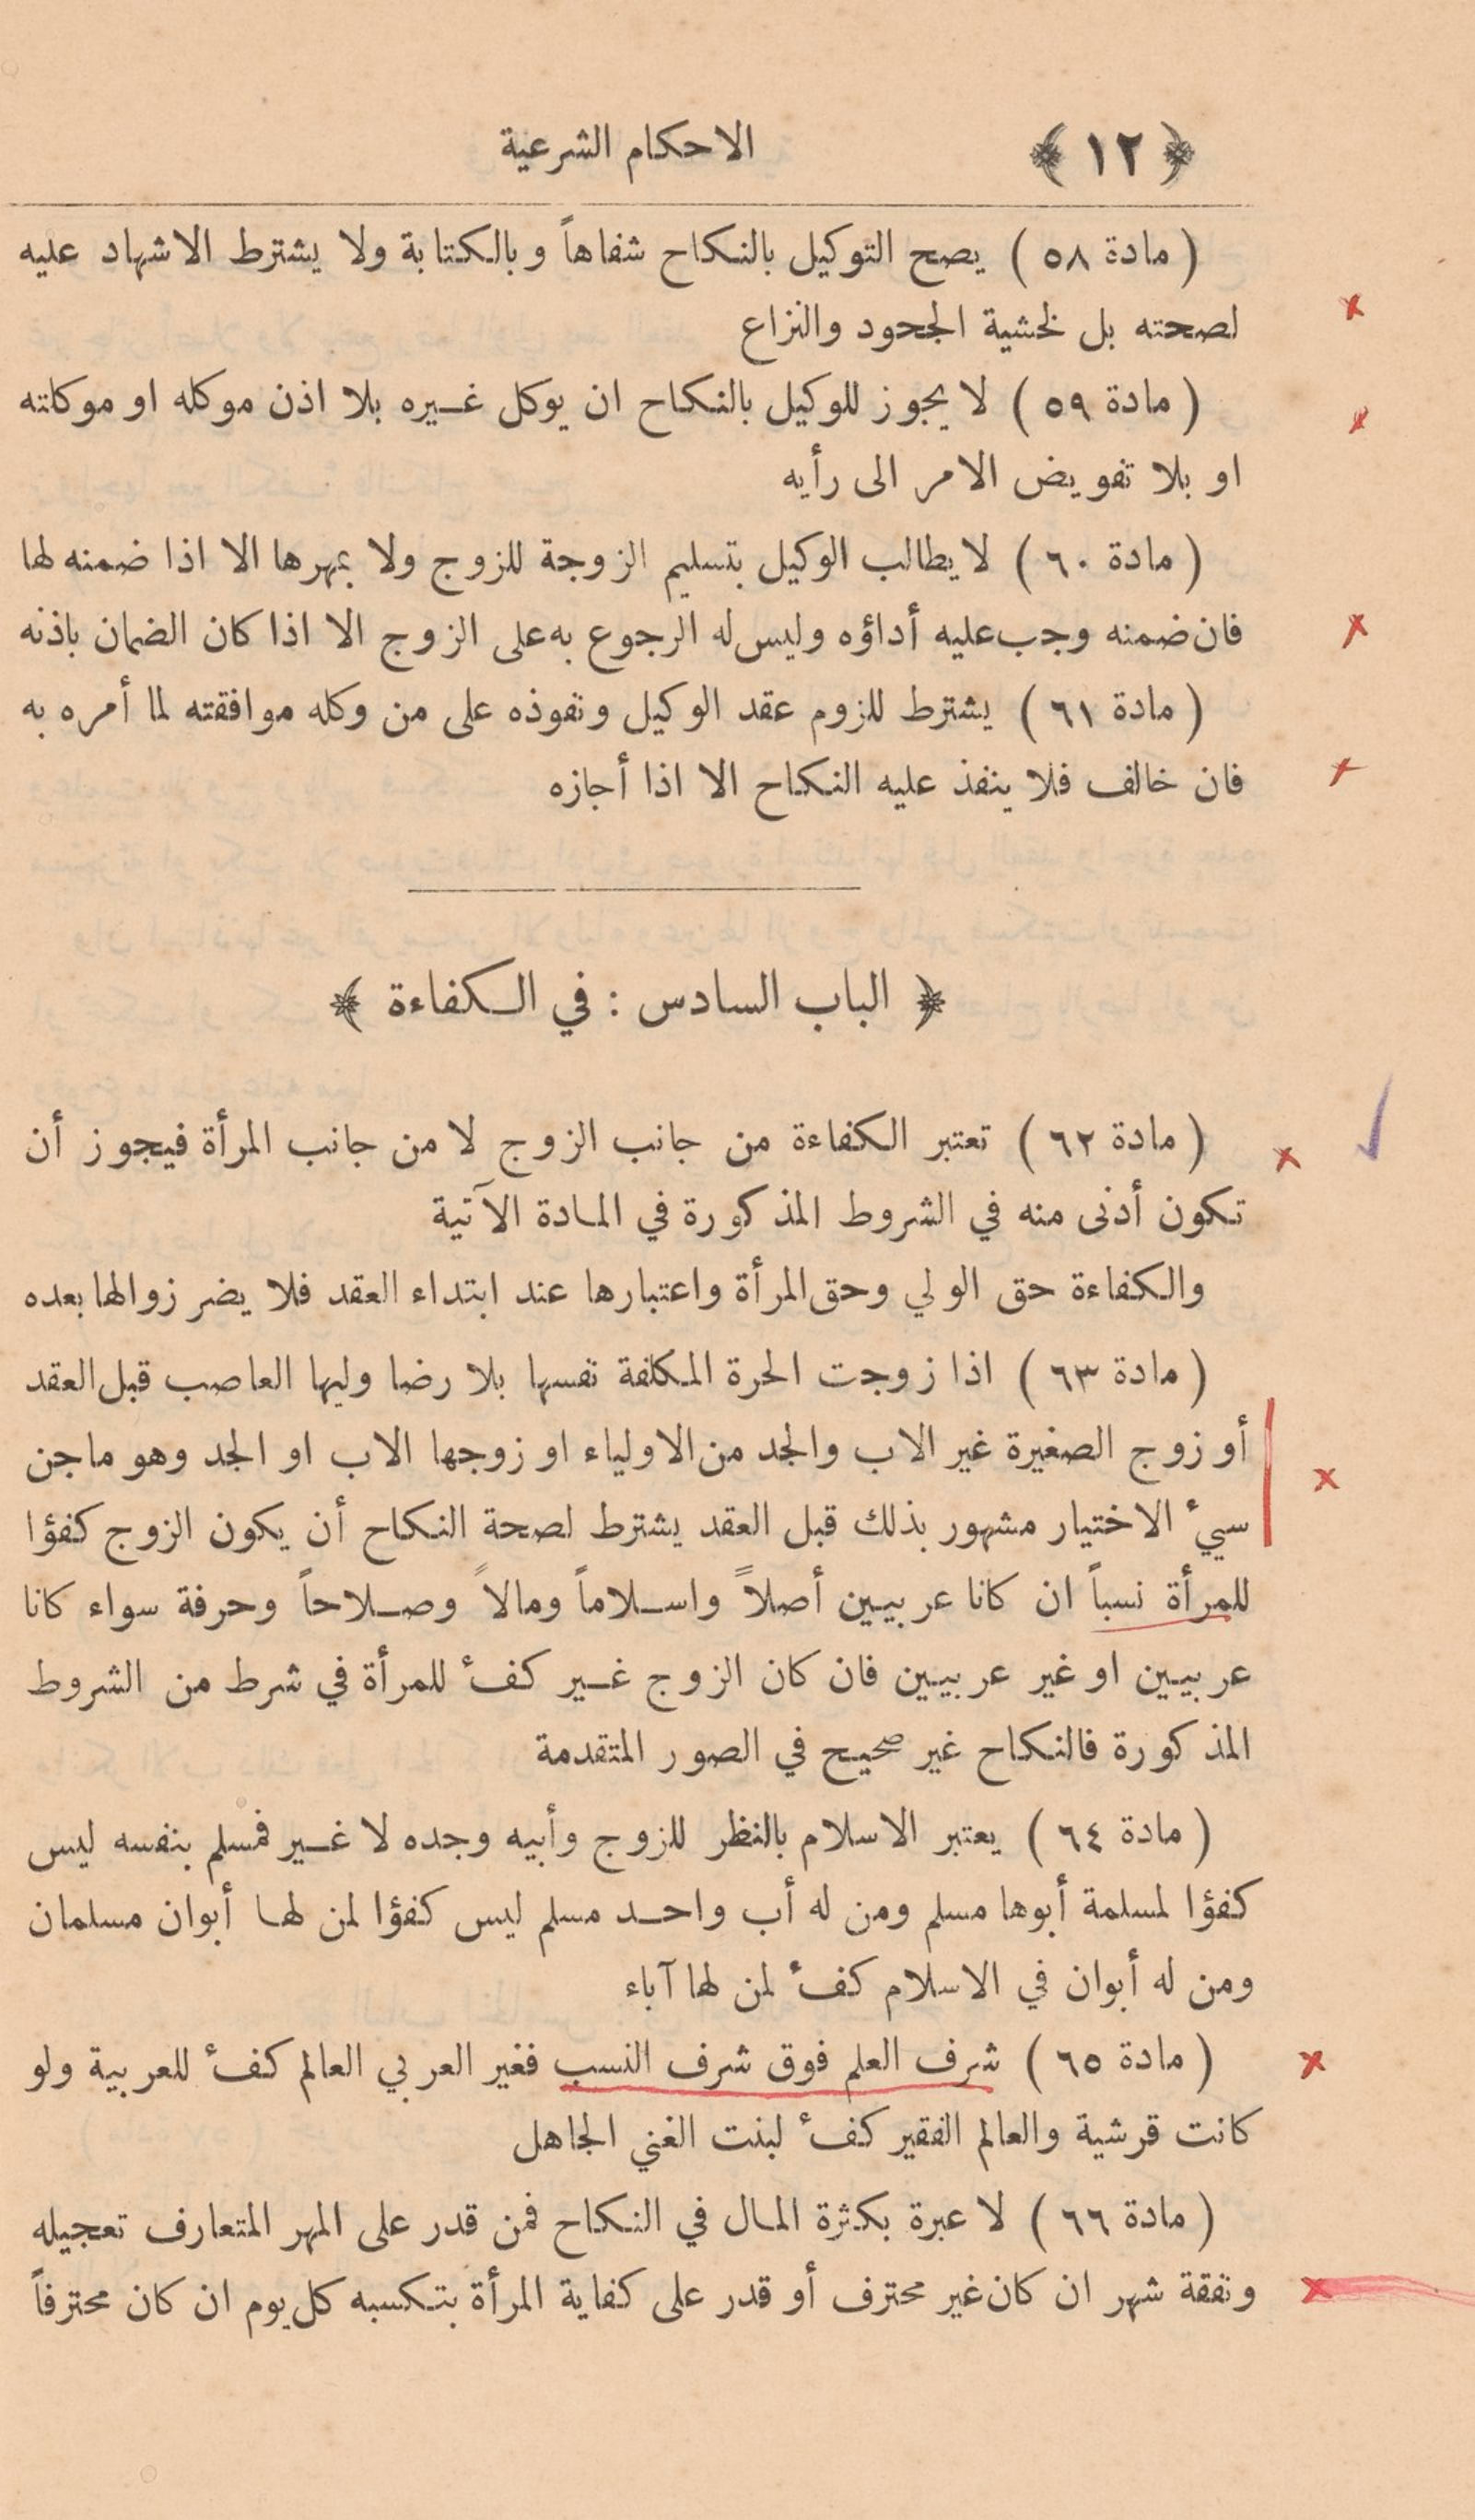 ﴿ ١٢ ﴾ الاحكام الشرعية
( مادة ٥٨ ) يصح التوكيل بالنكاح شفاهاً وبالكتابة ولا يشترط الاشهاد عليه
لصحته بل لخشية الجحود والنزاع
( مادة ٥٩ ) لا يجوز للوكيل بالنكاح ان يوكل غـير‌ه بلا اذن موكله او موكلته
او بلا تفويض الامر الى رأيه
( مادة ٦٠ ) لا يطالب الوكيل بتسليم الزوجة للزوج ولا بمهرها الا اذا ضمنه لها
فان ضمنه وجب عليه أداؤه وليس له الرجوع به على الزوج الا اذا كان الضمان باذنه
( مادة ٦١ ) يشترط للزوم عقد الوكيل ونفوذه على من وكله موافقته لما أمره به
فان خالف فلا ينفذ عليه النكاح الا اذا أجازه
﴿ الباب السادس : في الكفاءة ﴾
( مادة ٦٢ ) تعتبر الكفاءة من جانب الزوج لا من جانب المرأة فيجوز أن
تكون أدنى منه في الشروط المذكورة في المادة الآتية
والكفاءة حق الولي وحق المرأة واعتبارها عند ابتداء العقد فلا يضر زوالها بعده
( مادة ٦٣ ) اذا زوجت الحرة المكلفة نفسها بلا رضا وليها العاصب قبل العقد
أو زوج الصغيرة غير الاب والجد من الاولياء او زوجها الاب او الجد وهو ماجن
سيءُ الاختيار مشهور بذلك قبل العقد يشترط لصحة النكاح أن يكون الزوج كفؤا
للمرأة نسباً ان كانا عربيين أصلاً واسلاماً ومالاً وصلاحاً وحرفة سواء كانا
عربيين او غير عربيين فان كان الزوج غير كفءٍ للمرأة في شرط من الشروط
المذكورة فالنكاح غير صحيح في الصور المتقدمة
( مادة ٦٤ ) يعتبر الاسلام بالنظر للزوج وأبيه وجده لا غير فمسلم بنفسه ليس
كفؤا لمسلمة أبوها مسلم ومن له أب واحد مسلم ليس كفؤا لمن لها أبوان مسلمان
ومن له أبوان في الاسلام كفء لمن لها آباء
( مادة ٦٥ ) شرف العلم فوق شرف النسب فغير العربي العالم كفء للعربية ولو
كانت قرشية والعالم الفقير كفء لبنت الغني الجاهل
( مادة ٦٦ ) لا عبرة بكثرة المال في النكاح فمن قدر على المهر المتعارف تعجيله
ونفقة شهر ان كان غير محترف أو قدر على كفاية المرأة بتكسبه كل يوم ان كان محترفاً